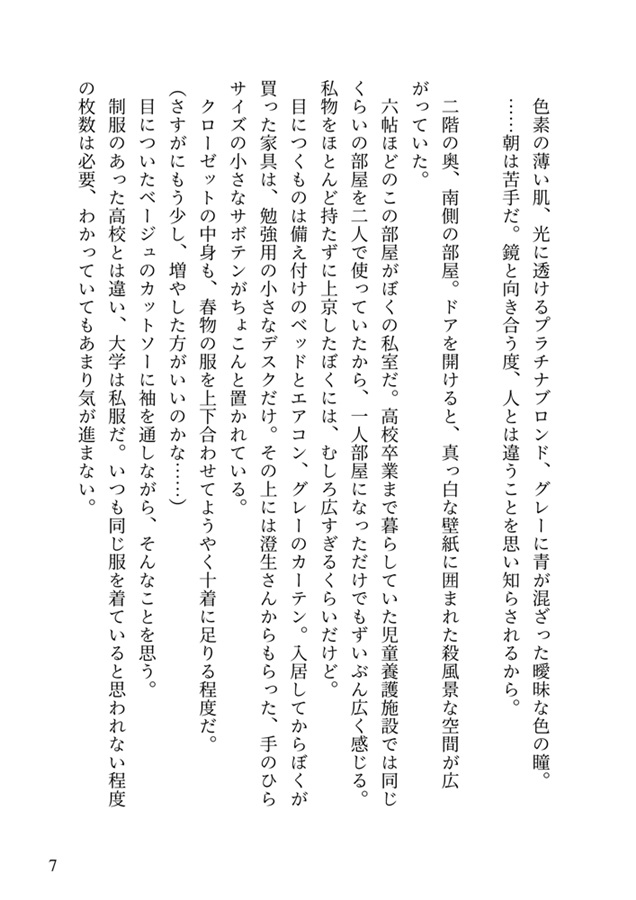 色素の薄い肌、光に透けるプラチナブロンド、グレーに青が混ざった曖昧な色の瞳。
　……朝は苦手だ。鏡と向き合う度、人とは違うことを思い知らされるから。
　二階の奥、南側の部屋。ドアを開けると、真っ白な壁紙に囲まれた殺風景な空間が広
がっていた。
　六帖ほどのこの部屋がぼくの私室だ。高校卒業まで暮らしていた児童養護施設では同じ
くらいの部屋を二人で使っていたから、一人部屋になっただけでもずいぶん広く感じる。
私物をほとんど持たずに上京したぼくには、むしろ広すぎるくらいだけど。
　目につくものは備え付けのベッドとエアコン、グレーのカーテン。入居してからぼくが
買った家具は、勉強用の小さなデスクだけ。その上には澄生さんからもらった、手のひら
サイズの小さなサボテンがちょこんと置かれている。
　クローゼットの中身も、春物の服を上下合わせてようやく十着に足りる程度だ。
（さすがにもう少し、増やした方がいいのかな……）
　目についたベージュのカットソーに袖を通しながら、そんなことを思う。
　制服のあった高校とは違い、大学は私服だ。いつも同じ服を着ていると思われない程度
の枚数は必要、わかっていてもあまり気が進まない。
7